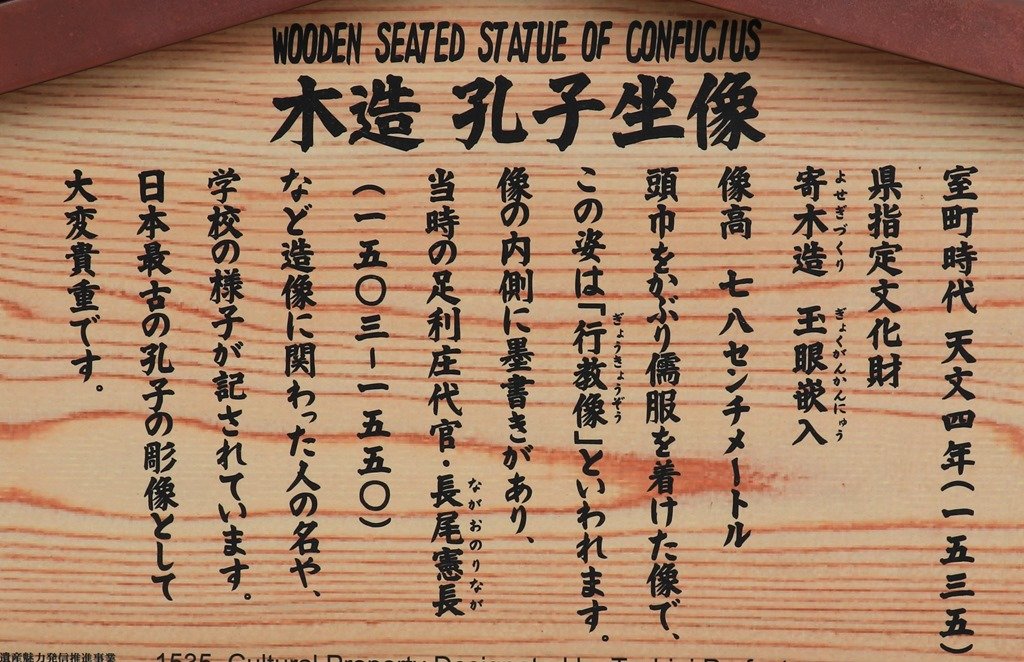 WOODEN SEATED STATUE OF CONFUCIUS
木造 孔子坐像
室町時代 天文四年(一五三五)
県指定文化財
寄木造 玉眼嵌入
よせぎづくり ぎょくがんかんにゅう
像高 七八センチメートル
頭巾をかぶり儒服を着けた像で、
この姿は「行教像」といわれます。
ぎょうきょうぞう
像の内側に墨書きがあり、
当時の足利庄代官・長尾憲長
ながおのりなが
(一五〇三-一五五〇)
など造像に関わった人の名や、
学校の様子が記されています。
日本最古の孔子の彫像として
大変貴重です。
遺産魅力発信推進事業
1535, Cultural Property Designated by